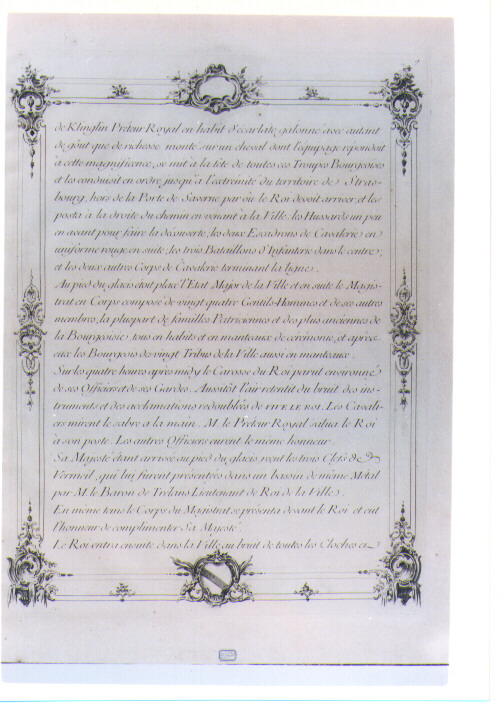 de Klinglin Preteur Royal en habit d'écarlate galonné avec autant
de goût que de richesse monté sur un cheval dont l'équipage répondoit
à cette magnificence, se mit à la tête de toutes ces Troupes Bourgeoises
et les conduisit en ordre jusqu'à l'extrémité du territoire de Stras-
bourg, hors de la Porte de Saverne par où le Roi devoit arriver, et les
posta à la droite du chemin en venant à la Ville, les Hussards un peu
en avant pour faire la découverte, les deux Escadrons de Cavalerie en
uniforme rouge en suite, les trois Bataillons d'Infanterie dans le centre,
et les deux autres Corps de Cavalerie terminant la ligne.
Au pied du glacis étoit placé l'Etat Major de la Ville et en suite le Magis-
trat en Corps composé de vingt quatre Gentils-Hommes et de ses autres
membres, la pluspart de familles Patriciennes et des plus anciennes de
la Bourgeoisie, tous en habits et en manteaux de cérémonie, et après
eux les Bourgeois des vingt Tribus de la Ville aussi en manteaux.
Sur les quatre heures après midy le Carosse du Roi parut environné
de ses Officiers et de ses Gardes. Aussitôt l'air retentit du bruit des ins-
truments et des acclamations redoublées de VIVE LE ROI. Les Cavali-
ers mirent le sabre a la main. M. le Preteur Royal salua le Roi
à son poste. Les autres Officiers eurent le même honneur.
Sa Majesté étant arrivée au pied du glacis, reçut les trois Clefs de
Vermeil, qui lui furent présentées dans un bassin de même Métal
par M. le Baron de Trélans Lieutenant de Roi de la Ville.
En même tems le Corps du Magistrat se présenta devant le Roi et eut
l'honneur de complimenter Sa Majesté.
Le Roi entra ensuite dans la Ville au bruit de toutes les Cloches et